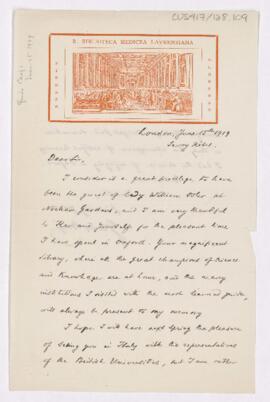 CUS417/128.109
R. BIBLIOTECA MEDICEA LAURENZIANA
FIRENZE
London, June 15th 1919
Savoy Hôtel.
Dear Sir,
I consider as a great privilege to have
been the guest of Lady William Osler at
Norham Gardens, and I am very thankful
to Her and yourself for the pleasant time
I have spent in Oxford. Your magnificent
library, where all the great champions of Science
and Knowledge are at home, and the many
institutions I visited with the most learned guide,
will always be present to my memory.
I hope I will have next spring the pleasure
of seeing you in Italy with the representatives
of the British Universities, but I am rather